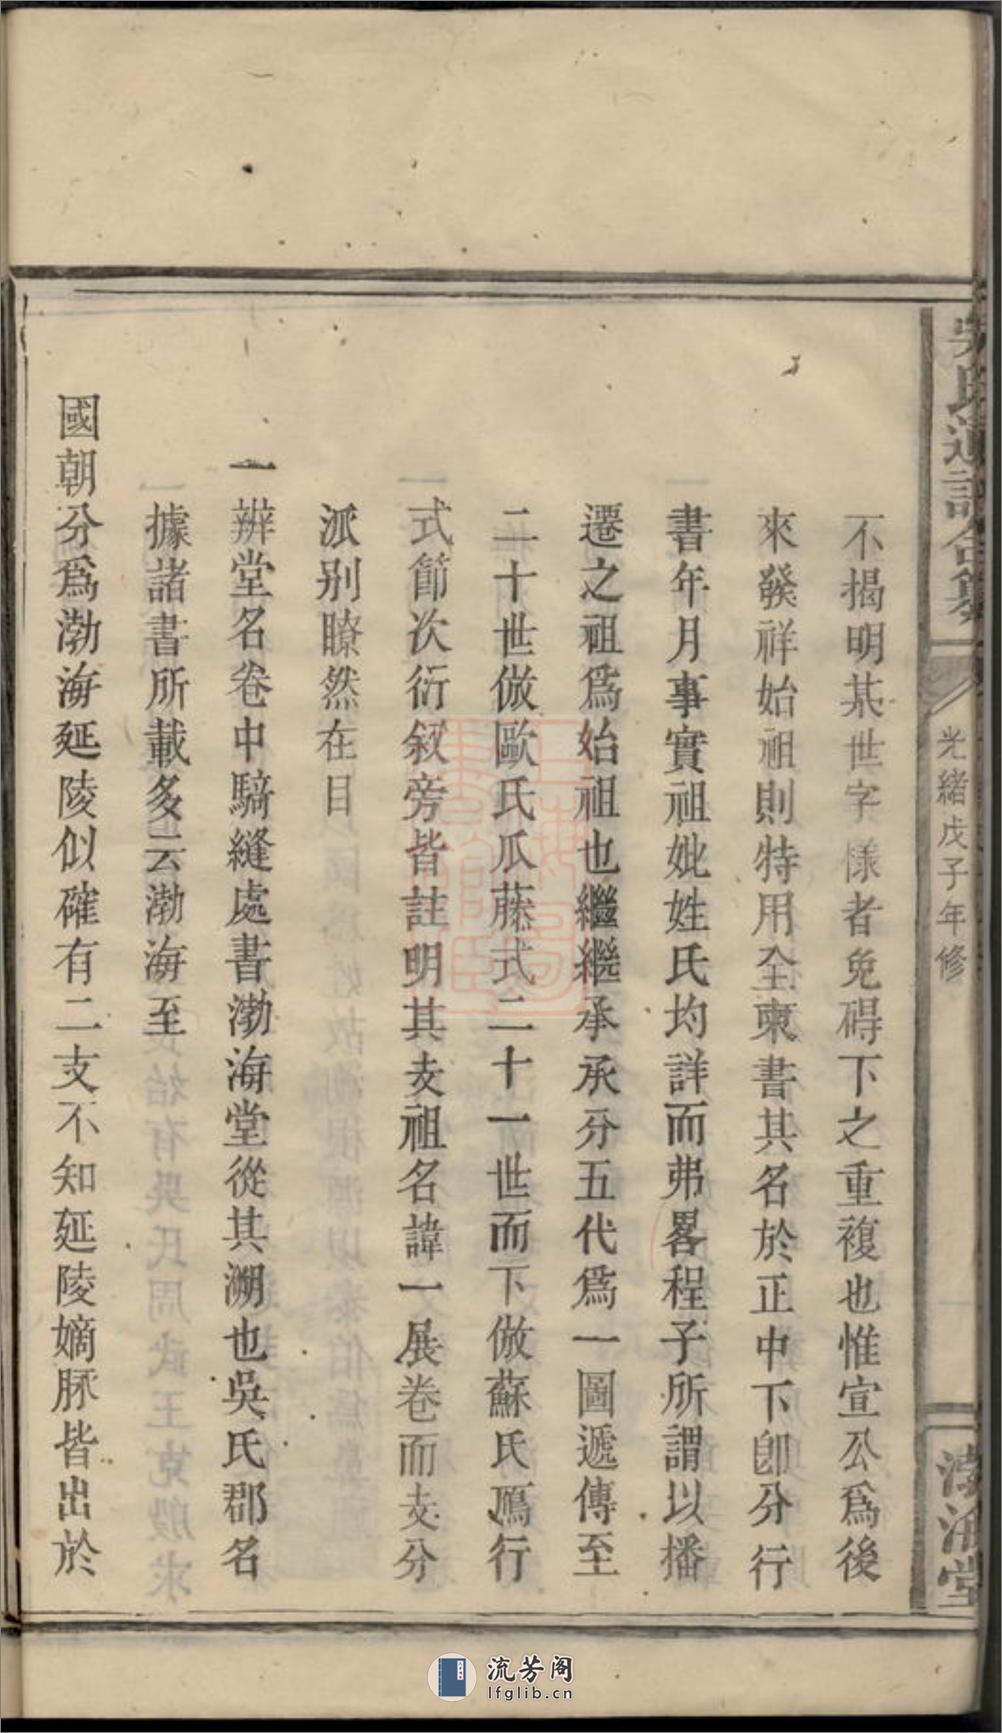 吳氏通譜合纂
光緒戊子年修
渤海堂
不揭明某世字樣者免碍下之重複也惟宣公爲後
來發祥始祖則特用全柬書其名於正中下卽分行
書年月事實祖妣姓氏均詳而弗畧程子所謂以播
遷之祖爲始祖也繼繼承承分五代爲一圖遞傳至
二十世倣歐氏瓜藤式二十一世而下倣蘇氏鴈行
式節次衍敘旁皆註明其支祖名諱一展卷而支分
派別瞭然在目
一辨堂名卷中騎縫處書渤海堂從其溯也吳氏郡名
據諸書所載多云渤海至
國朝分爲渤海延陵似確有二支不知延陵嫡脈皆出於
流芳阁
lfglib.cn